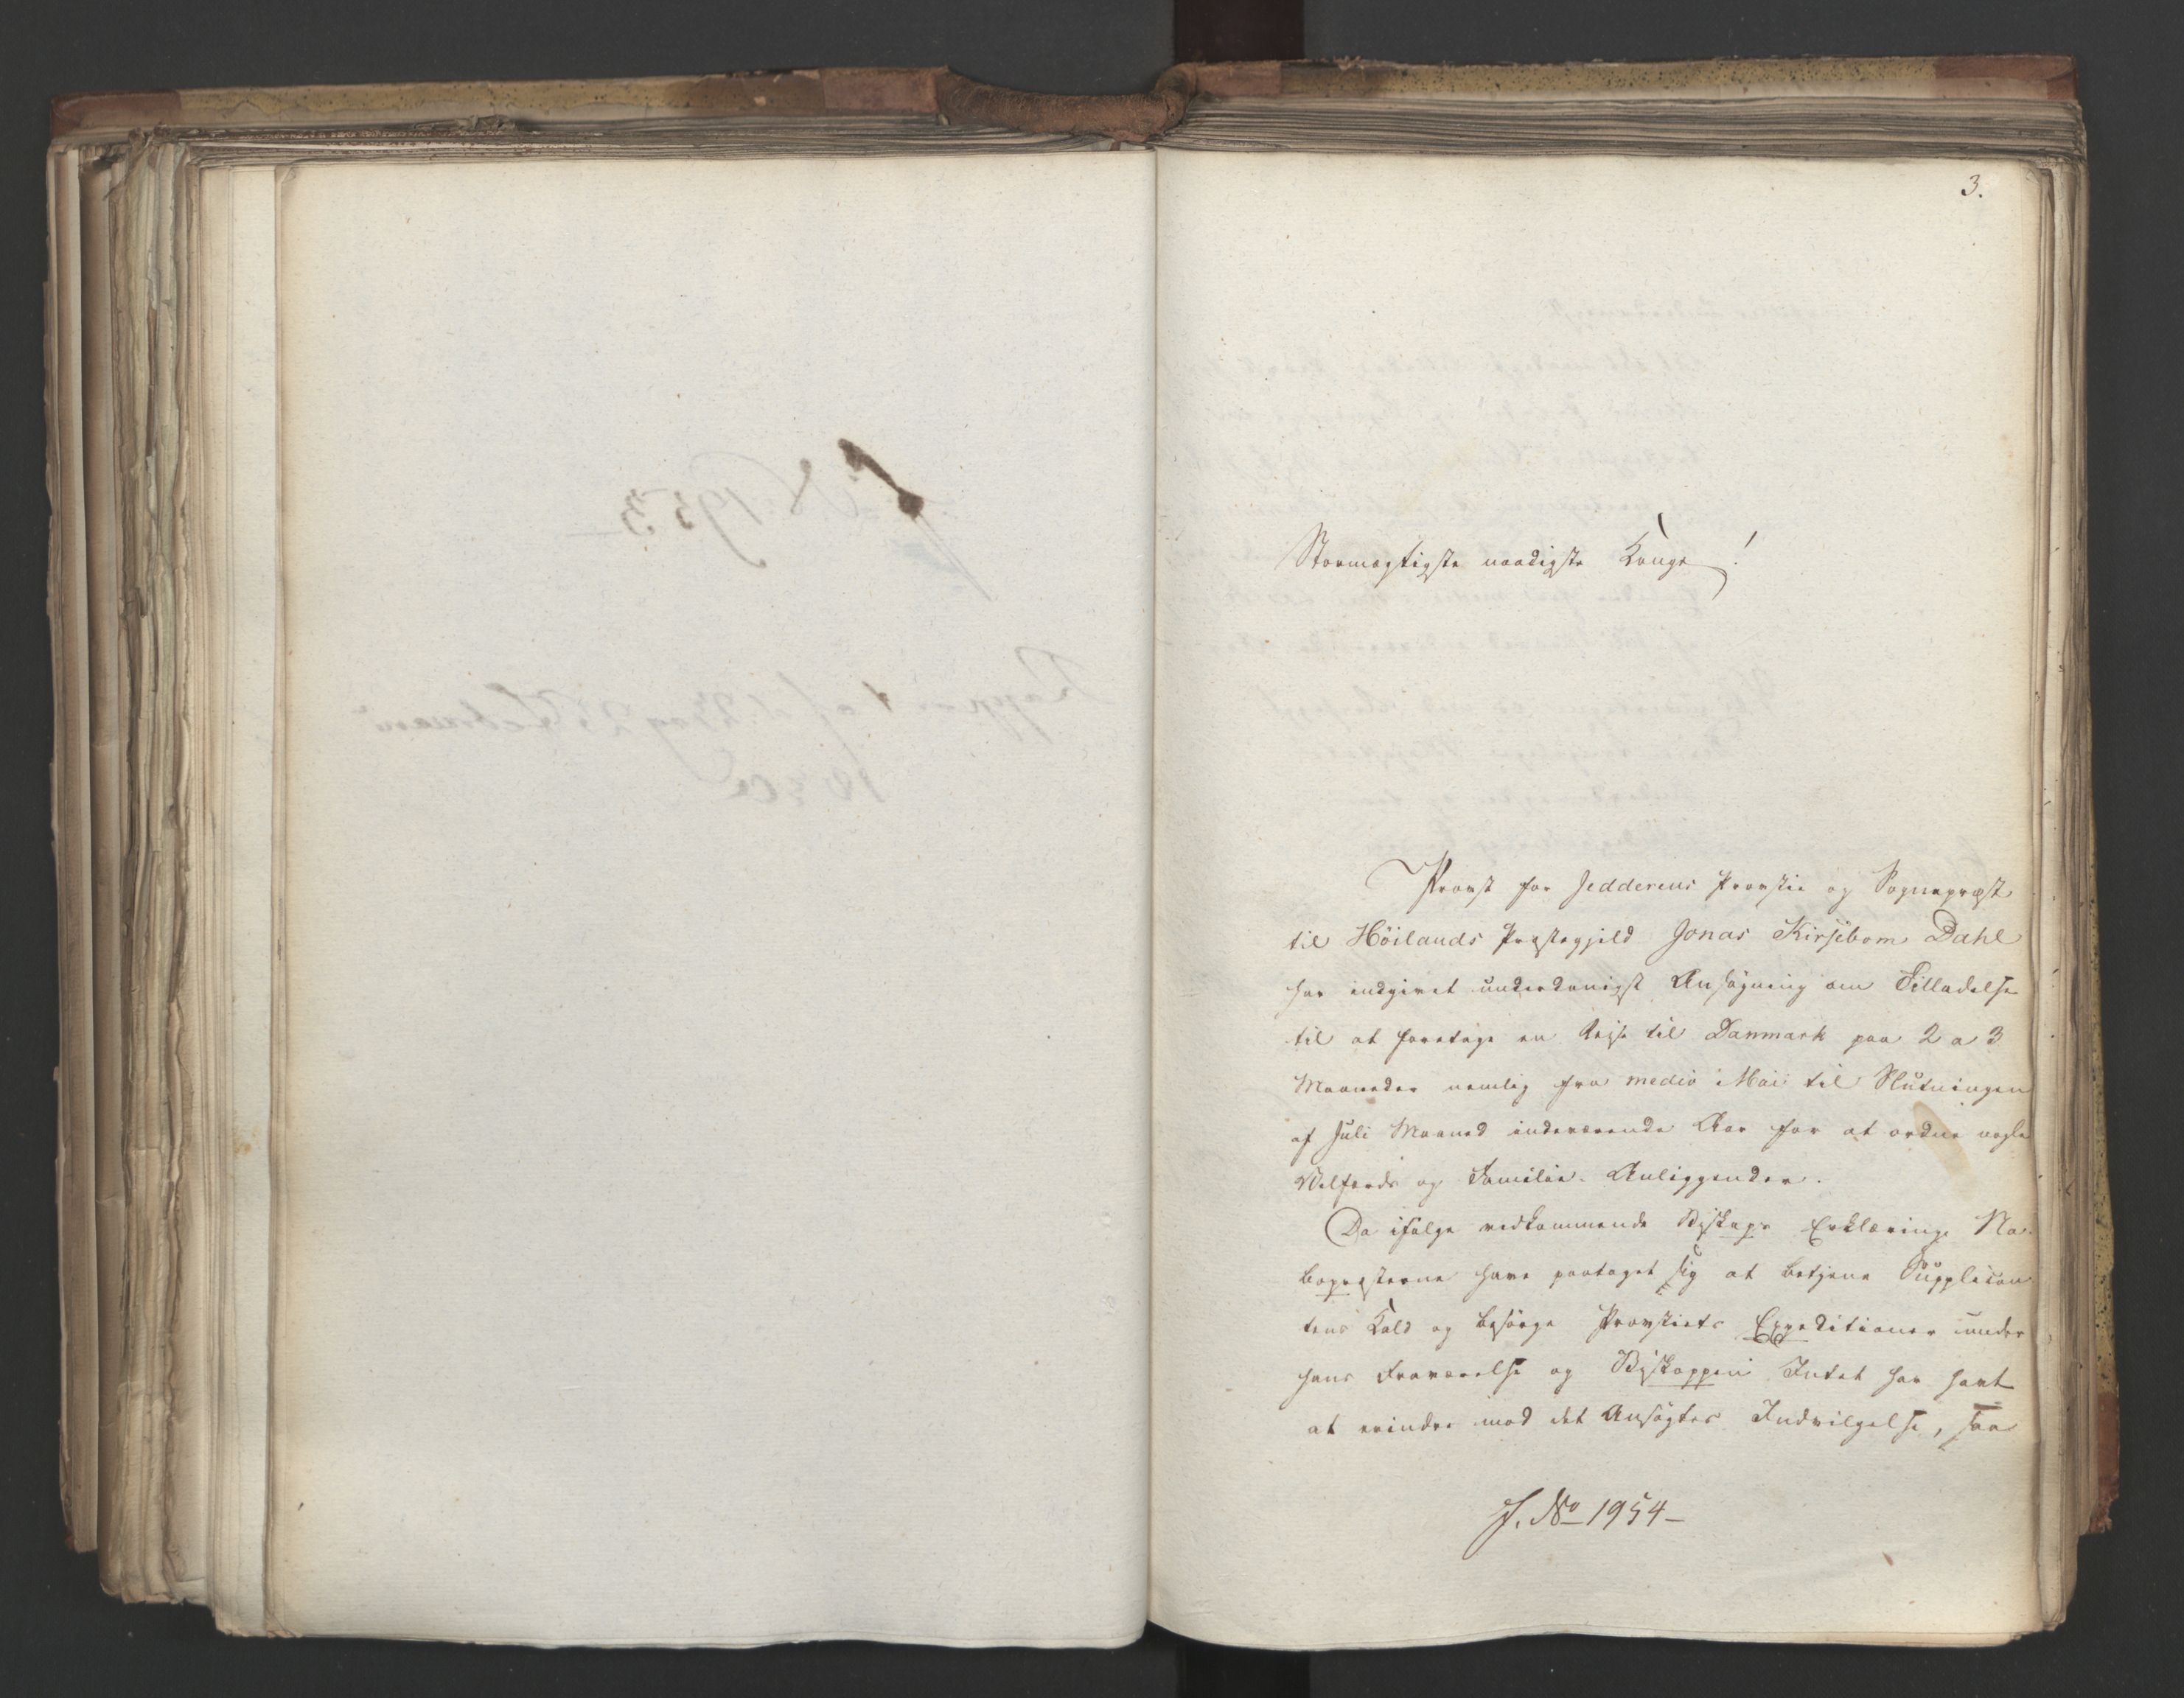 3.
Stormægtigste naadigste Konge!
Provst for Jedderens Provstie og Sognepræst
til Höilands Præstegjeld Jonas Kirsebom Dahl
har indgivet underdanigst Ansøgning om Tilladelse
til at foretage en Rejse til Danmark paa 2 a 3
Maaneder nemlig fra medio Mai til Slutningen
af Juli Maaned indeværende Aar for at ordne nogle
Velfærds og Familie-Anliggender.
Da ifølge vedkommende Biskops Erklæring Na-
bopræsterne have paataget sig at betjene Supplican
tens Kald og besørge Provstiets Expeditioner under
hans Fraværelse og Biskoppen Intet har havt
at erindre mod det Ansøgtes Indvilgelse, saa
J. No 1954-